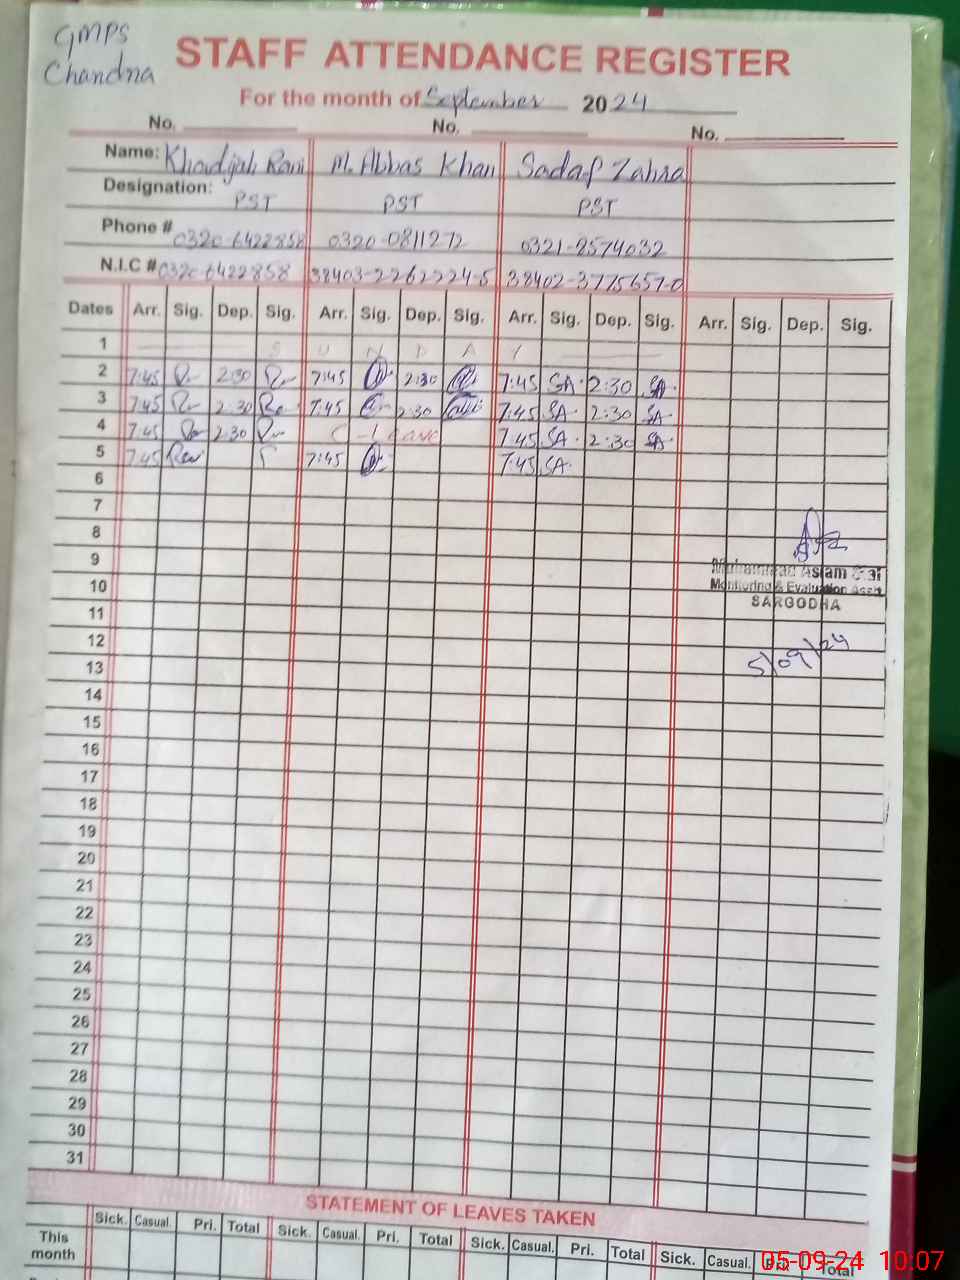 GMPS
Chandna
STAFF ATTENDANCE REGISTER
For the month of September 2024
No. No. No.
Name: Khadijah Rani M. Abbas Khan Sadaf Zahra
Designation: PST PST PST
Phone # 0320-6422858 0320-0811272 0321-2574032
N.I.C # 0320-6422858 38403-2262224-5 38402-3775657-0
Dates Arr. Sig. Dep. Sig. Arr. Sig. Dep. Sig. Arr. Sig. Dep. Sig. Arr. Sig. Dep. Sig.
1 S U N D A Y
2 7:45 2:30 7:45 2:30 7:45 SA 2:30 SA
3 7:45 2:30 7:45 2:30 7:45 SA 2:30 SA
4 7:45 2:30 C-Leave 7:45 SA 2:30 SA
5 7:45 7:45 7:45 SA
6
7
8
9
10
11
12
13
14
15
16
17
18
19
20
21
22
23
24
25
26
27
28
29
30
31
Muhammad Aslam
Monitoring & Evaluation Asstt
SARGODHA
5/09/24
STATEMENT OF LEAVES TAKEN
Sick. Casual. Pri. Total Sick. Casual. Pri. Total Sick. Casual. Pri. Total Sick. Casual. Pri. Total
This
month
05-09-24 10:07